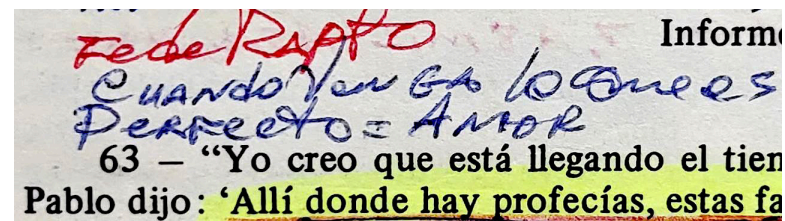 Fe de RAPTO
Informe
CUANDO VenGA lo Que es
PERFecto = AMOR
63 – “Yo creo que está llegando el tien
Pablo dijo: ‘Allí donde hay profecías, estas fa